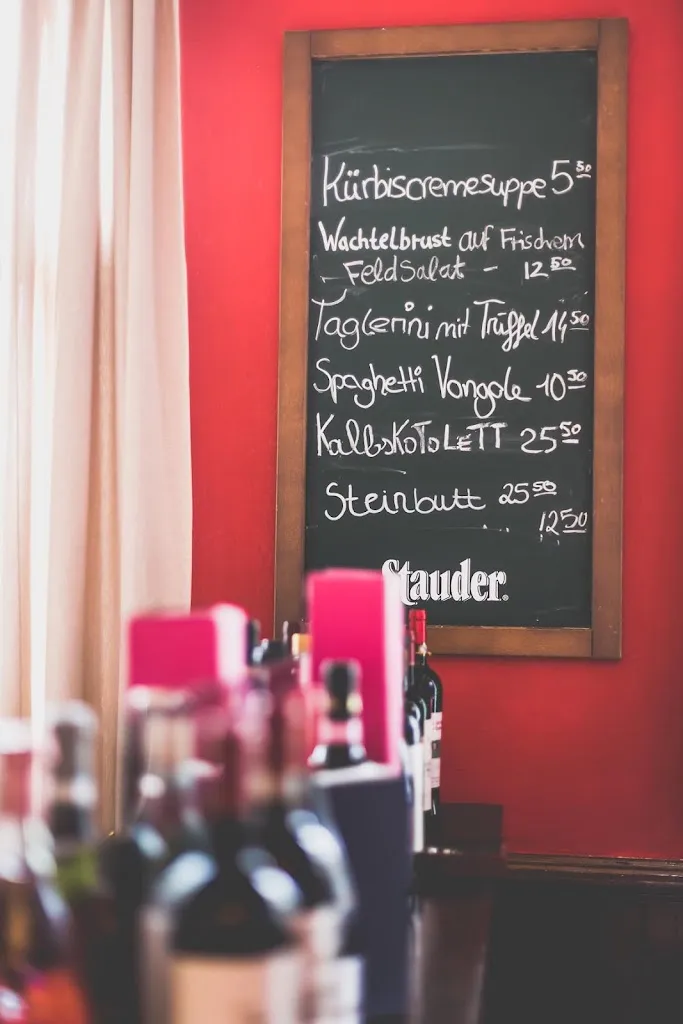 Kürbiscremesuppe 5 50
Wachtelbrust auf Frischem
- FeldSalat - 12 50
Taglerini mit Trüffel 14 50
Spaghetti Vongole 10 50
KalbsKoToLETT 25 50
Steinbutt 25 50
12 50
Stauder.